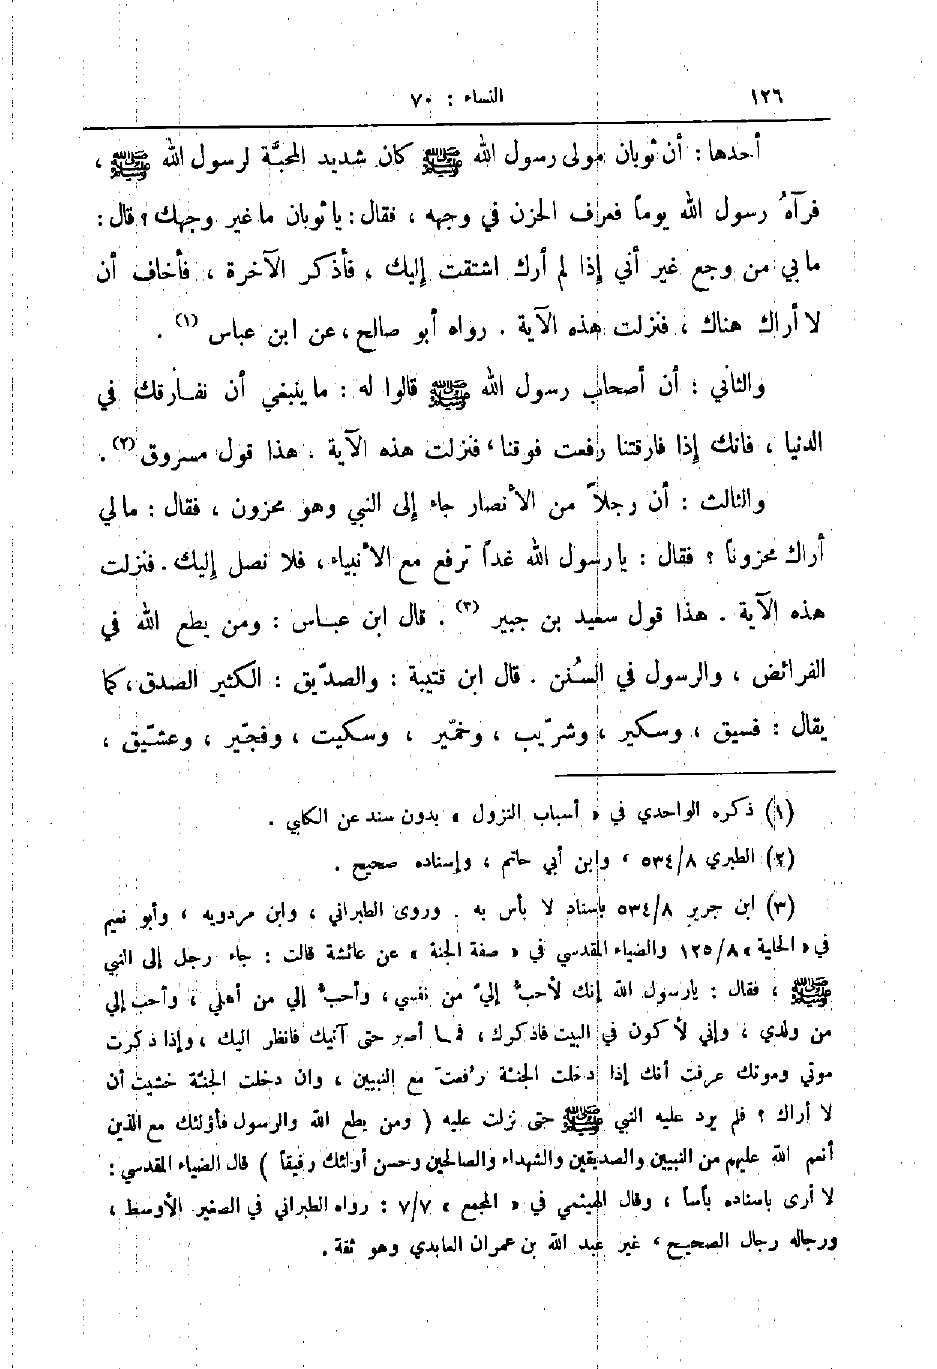 ١٢٦
النساء : ٧٠
أحدها : أن ثوبان مولى رسول الله ﷺ كان شديد المحبَّة لرسول الله ﷺ ،
فرآهُ رسول الله يوماً فعرف الحزن في وجهه ، فقال : يا ثوبان ما غير وجهك ؟ قال :
ما بي من وجع غير أني إذا لم أرك اشتقت إليك ، فأذكر الآخرة ، فأخاف أن
لا أراك هناك ، فنزلت هذه الآية . رواه أبو صالح ، عن ابن عباس (١) .
والثاني : أن أصحاب رسول الله ﷺ قالوا له : ما ينبغي أن نفارقك في
الدنيا ، فانك إذا فارقتنا رفعت فوقنا ، فنزلت هذه الآية . هذا قول مسروق (٢) .
والثالث : أن رجلاً من الأنصار جاء إلى النبي وهو محزون ، فقال : ما لي
أراك محزوناً ؟ فقال : يا رسول الله غداً ترفع مع الأنبياء ، فلا نصل إليك . فنزلت
هذه الآية . هذا قول سعيد بن جبير (٣) . قال ابن عباس : ومن يطع الله في
الفرائض ، والرسول في السُنن . قال ابن قتيبة : والصدّيق : الكثير الصدق ، كما
يقال : فسيق ، وسكير ، وشرّيب ، وخمّير ، وسكيت ، وفجّير ، وعشّيق ،
(١) ذكره الواحدي في « أسباب النزول » بدون سند عن الكلبي .
(٢) الطبري ٥٣٤/٨ ، وابن أبي حاتم ، وإسناده صحيح .
(٣) ابن جرير ٥٣٤/٨ بإسناد لا بأس به . وروى الطبراني ، وابن مردويه ، وأبو نعيم
في « الحلية » ١٢٥/٨ والضياء المقدسي في « صفة الجنة » عن عائشة قالت : جاء رجل إلى النبي
ﷺ ، فقال : يا رسول الله إنك لأحبُّ إليَّ من نفسي ، وأحبُّ إلي من أهلي ، وأحب إلي
من ولدي ، وإني لأكون في البيت فاذكرك ، فما أصبر حتى آتيك فانظر اليك ، وإذا ذكرت
موتي وموتك عرفت أنك إذا دخلت الجنة رُفعتَ مع النبيين ، وان دخلت الجنة خشيت أن
لا أراك ؟ فلم يرد عليه النبي ﷺ حتى نزلت عليه ( ومن يطع الله والرسول فأولئك مع الذين
أنعم الله عليهم من النبيين والصديقين والشهداء والصالحين وحسن أولئك رفيقاً ) قال الضياء المقدسي :
لا أرى باسناده بأساً ، وقال الهيثمي في « المجمع » ٧/٧ : رواه الطبراني في الصغير الأوسط ،
ورجاله رجال الصحيح ، غير عبد الله بن عمران العابدي وهو ثقة .